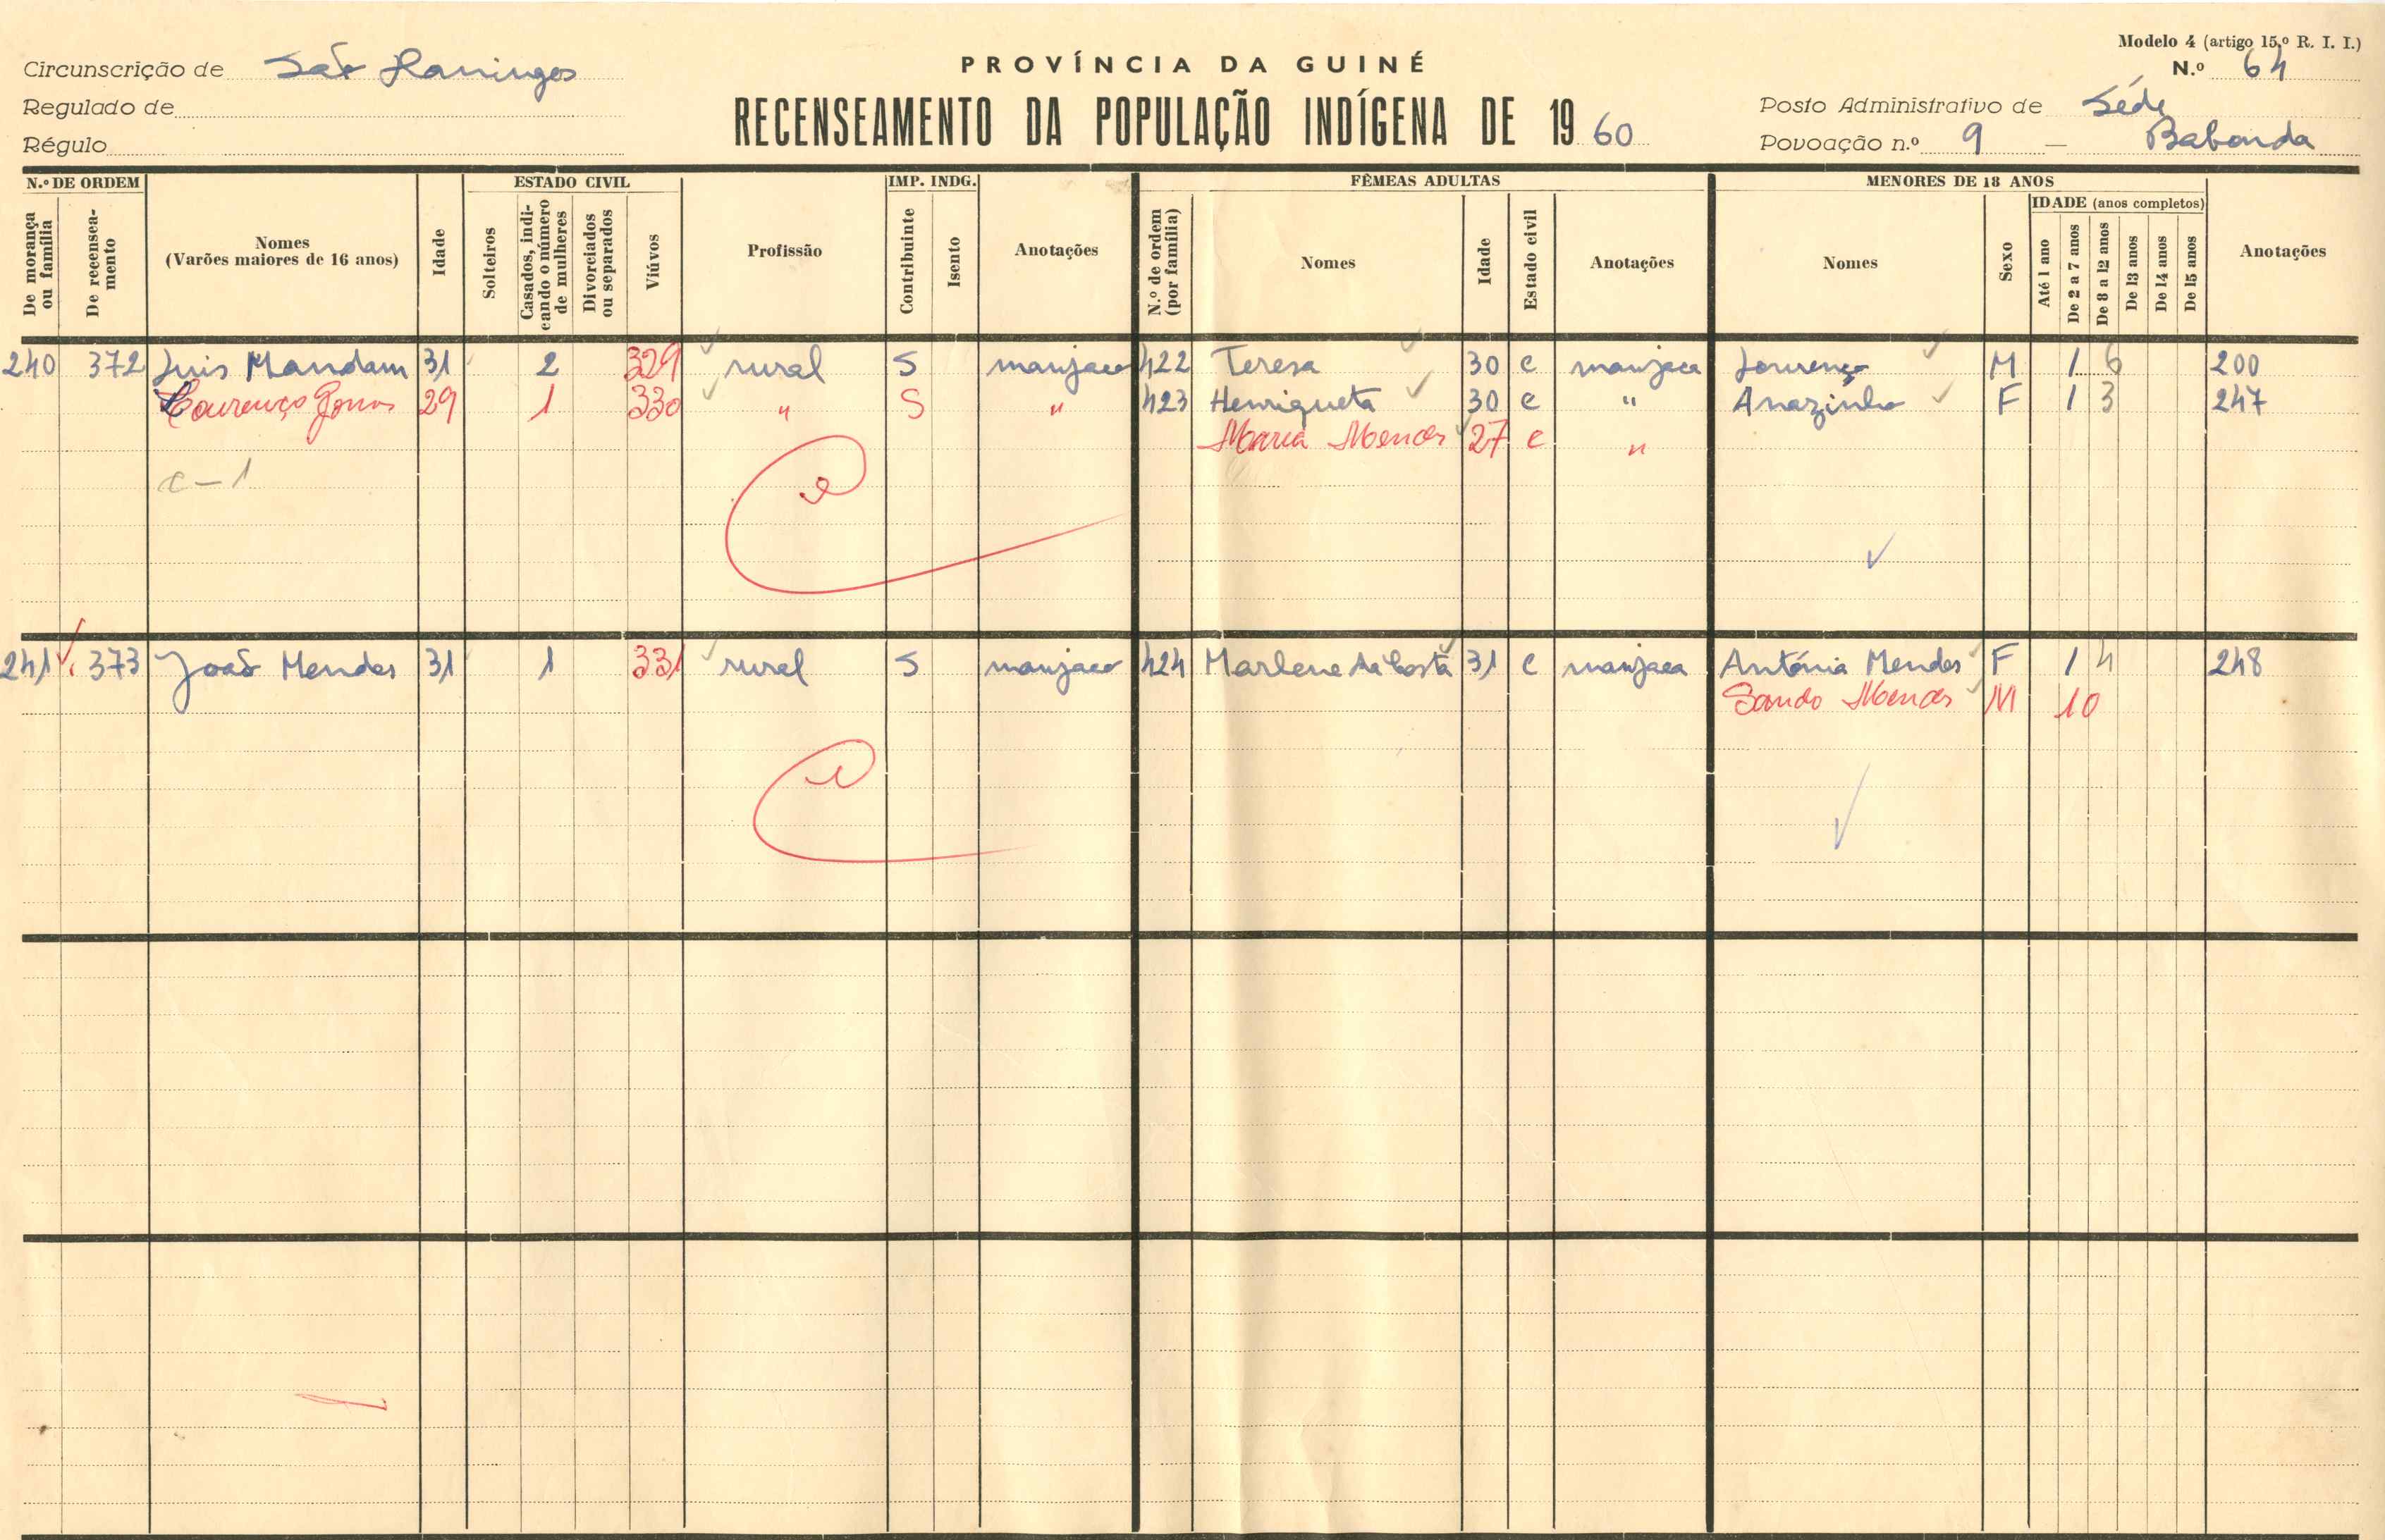 Modelo 4 (artigo 15.º R. I. I.)
Circunscrição de São Domingos
PROVÍNCIA DA GUINÉ
N.º 64
Regulado de
RECENSEAMENTO DA POPULAÇÃO INDÍGENA DE 1960
Posto Administrativo de Séde
Régulo
Povoação n.º 9 — Babonda
N.º DE ORDEM
ESTADO CIVIL
IMP. INDG.
FÊMEAS ADULTAS
MENORES DE 18 ANOS
De morança ou família
De recensea-mento
Nomes (Varões maiores de 16 anos)
Idade
Solteiros
Casados, indi-cando o número de mulheres
Divorciados ou separados
Viúvos
Profissão
Contribuinte
Isento
Anotações
N.º de ordem (por família)
Nomes
Idade
Estado civil
Anotações
Nomes
Sexo
IDADE (anos completos)
Até 1 ano
De 2 a 7 anos
De 8 a 12 anos
De 13 anos
De 14 anos
De 15 anos
Anotações
240 372 Luis Mandam 31 2 329 rural S manjaco 422 Teresa 30 c manjaca Lourenço M 1 6 200
Lourenço Gomes 29 1 330 " S " 423 Henriqueta 30 c " Anazinha F 1 3 247
Maria Mendes 27 c "
c - 1
241 373 João Mendes 31 1 331 rural S manjaco 424 Marlene da Costa 31 c manjaca Antónia Mendes F 1 4 248
Mendes M 10